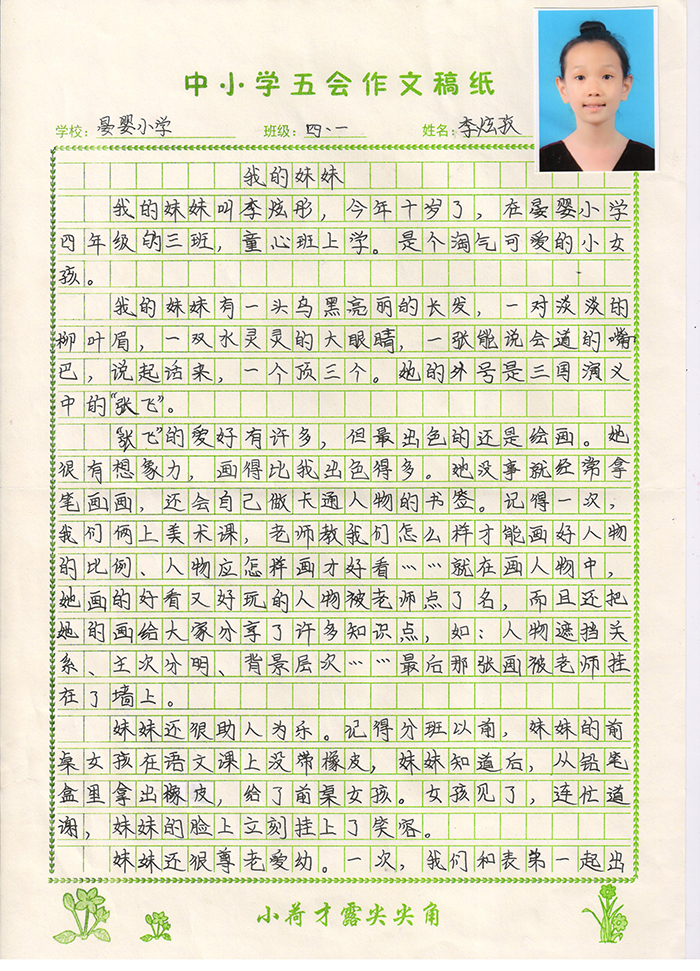 中小学五会作文稿纸
学校：晏婴小学 班级：四、一 姓名：李炫孜
我的妹妹
我的妹妹叫李炫彤，今年十岁了，在晏婴小学
四年级的三班，童心班上学。是个淘气可爱的小女
孩。
我的妹妹有一头乌黑亮丽的长发，一对淡淡的
柳叶眉，一双水灵灵的大眼睛，一张能说会道的嘴
巴，说起话来，一个顶三个。她的外号是三国演义
中的“张飞”。
“张飞”的爱好有许多，但最出色的还是绘画。她
很有想象力，画得比我出色得多。她没事就经常拿
笔画画，还会自己做卡通人物的书签。记得一次，
我们俩上美术课，老师教我们怎么样才能画好人物
的比例、人物应怎样画才好看……就在画人物中，
她画的好看又好玩的人物被老师点了名，而且还把
她的画给大家分享了许多知识点，如：人物遮挡关
系、主次分明、背景层次……最后那张画被老师挂
在了墙上。
妹妹还很助人为乐。记得分班以前，妹妹的前
桌女孩在语文课上没带橡皮，妹妹知道后，从铅笔
盒里拿出橡皮，给了前桌女孩。女孩见了，连忙道
谢，妹妹的脸上立刻挂上了笑容。
妹妹还很尊老爱幼。一次，我们和表弟一起出
小荷才露尖尖角